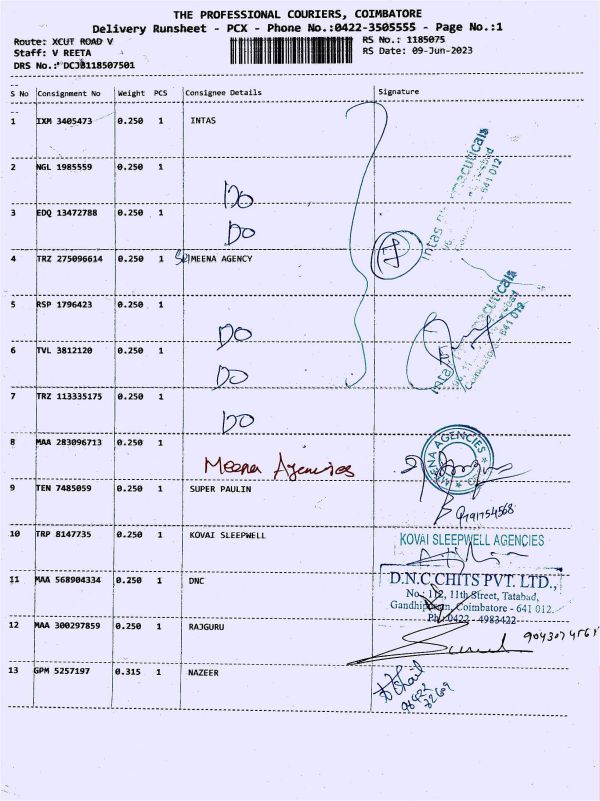 THE PROFESSIONAL COURIERS, COIMBATORE
Delivery Runsheet - PCX - Phone No.:0422-3505555 - Page No.:1
Route: XCUT ROAD V
RS No.: 1185075
Staff: V REETA
RS Date: 09-Jun-2023
DRS No.: DCJB118507501
S No Consignment No Weight PCS Consignee Details Signature
1 IXM 3405473 0.250 1 INTAS
2 NGL 1985559 0.250 1
DO
3 EDQ 13472788 0.250 1
DO
4 TRZ 275096614 0.250 1 MEENA AGENCY
5 RSP 1796423 0.250 1
DO
6 TVL 3812120 0.250 1
DO
7 TRZ 113335175 0.250 1
DO
8 MAA 283096713 0.250 1
Meena Agencies
MEENA AGENCIES
9 TEN 7485059 0.250 1 SUPER PAULIN
9791754568
10 TRP 8147735 0.250 1 KOVAI SLEEPWELL
KOVAI SLEEPWELL AGENCIES
11 MAA 568904334 0.250 1 DNC
D.N.C.CHITS PVT. LTD.,
No : 112, 11th Street, Tatabad,
Gandhipuram, Coimbatore - 641 012.
Ph : 0422 - 4983422
12 MAA 300297859 0.250 1 RAJGURU
13 GPM 5257197 0.315 1 NAZEER